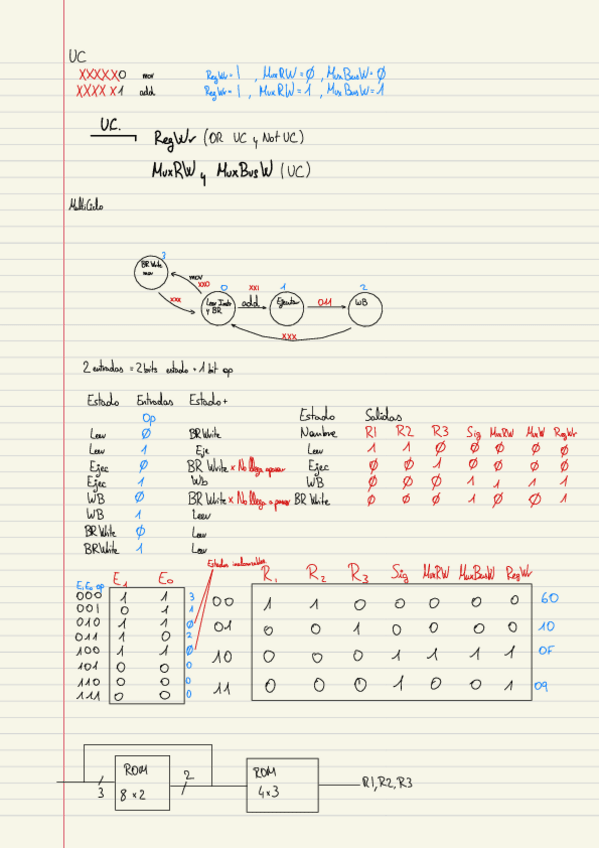 UC
XXXXX0 mov RegWr=1, MuxRW=Ø, MuxBusW=Ø
XXXXX1 add RegWr=1, MuxRW=1, MuxBusW=1
UC. RegWr (OR UC y Not UC)
MuxRW y MuxBusW (UC)
MultiCiclo
3
BR Write
mov
mov
xx0
0
xx1
1
2
Leer Instr
y BR
add
Ejecutar
011
WB
xxx
xxx
2 entradas = 2 bits estado + 1 bit op
Estado Entradas Estado+
Op
Leer Ø BRWrite
Leer 1 Eje
Ejec Ø BR Write x No llega a pasar
Ejec 1 Wb
WB Ø BR Write x No llega a pasar
WB 1 Leer
BR Write Ø Leer
BRWrite 1 Leer
Estado Salidas
Nombre R1 R2 R3 Sig MuxRW MuxW RegWr
Leer 1 1 Ø Ø Ø Ø Ø
Ejec Ø Ø 1 Ø Ø Ø Ø
WB Ø Ø Ø 1 1 1 1
BR Write Ø Ø Ø 1 Ø Ø 1
Estados inalcanzables
E₁E₀ op E₁ E₀
000 1 1 3
001 0 1 1
010 1 1 Ø
011 1 0 2
100 1 1 Ø
101 0 0 0
110 0 0 0
111 0 0 0
R₁ R₂ R₃ Sig MuxRW MuxBusW RegWr
00 1 1 0 0 0 0 0 60
01 0 0 1 0 0 0 0 10
10 0 0 0 1 1 1 1 0F
11 0 0 0 1 0 0 1 09
3
ROM
8x2
2
ROM
4x3
R1,R2,R3